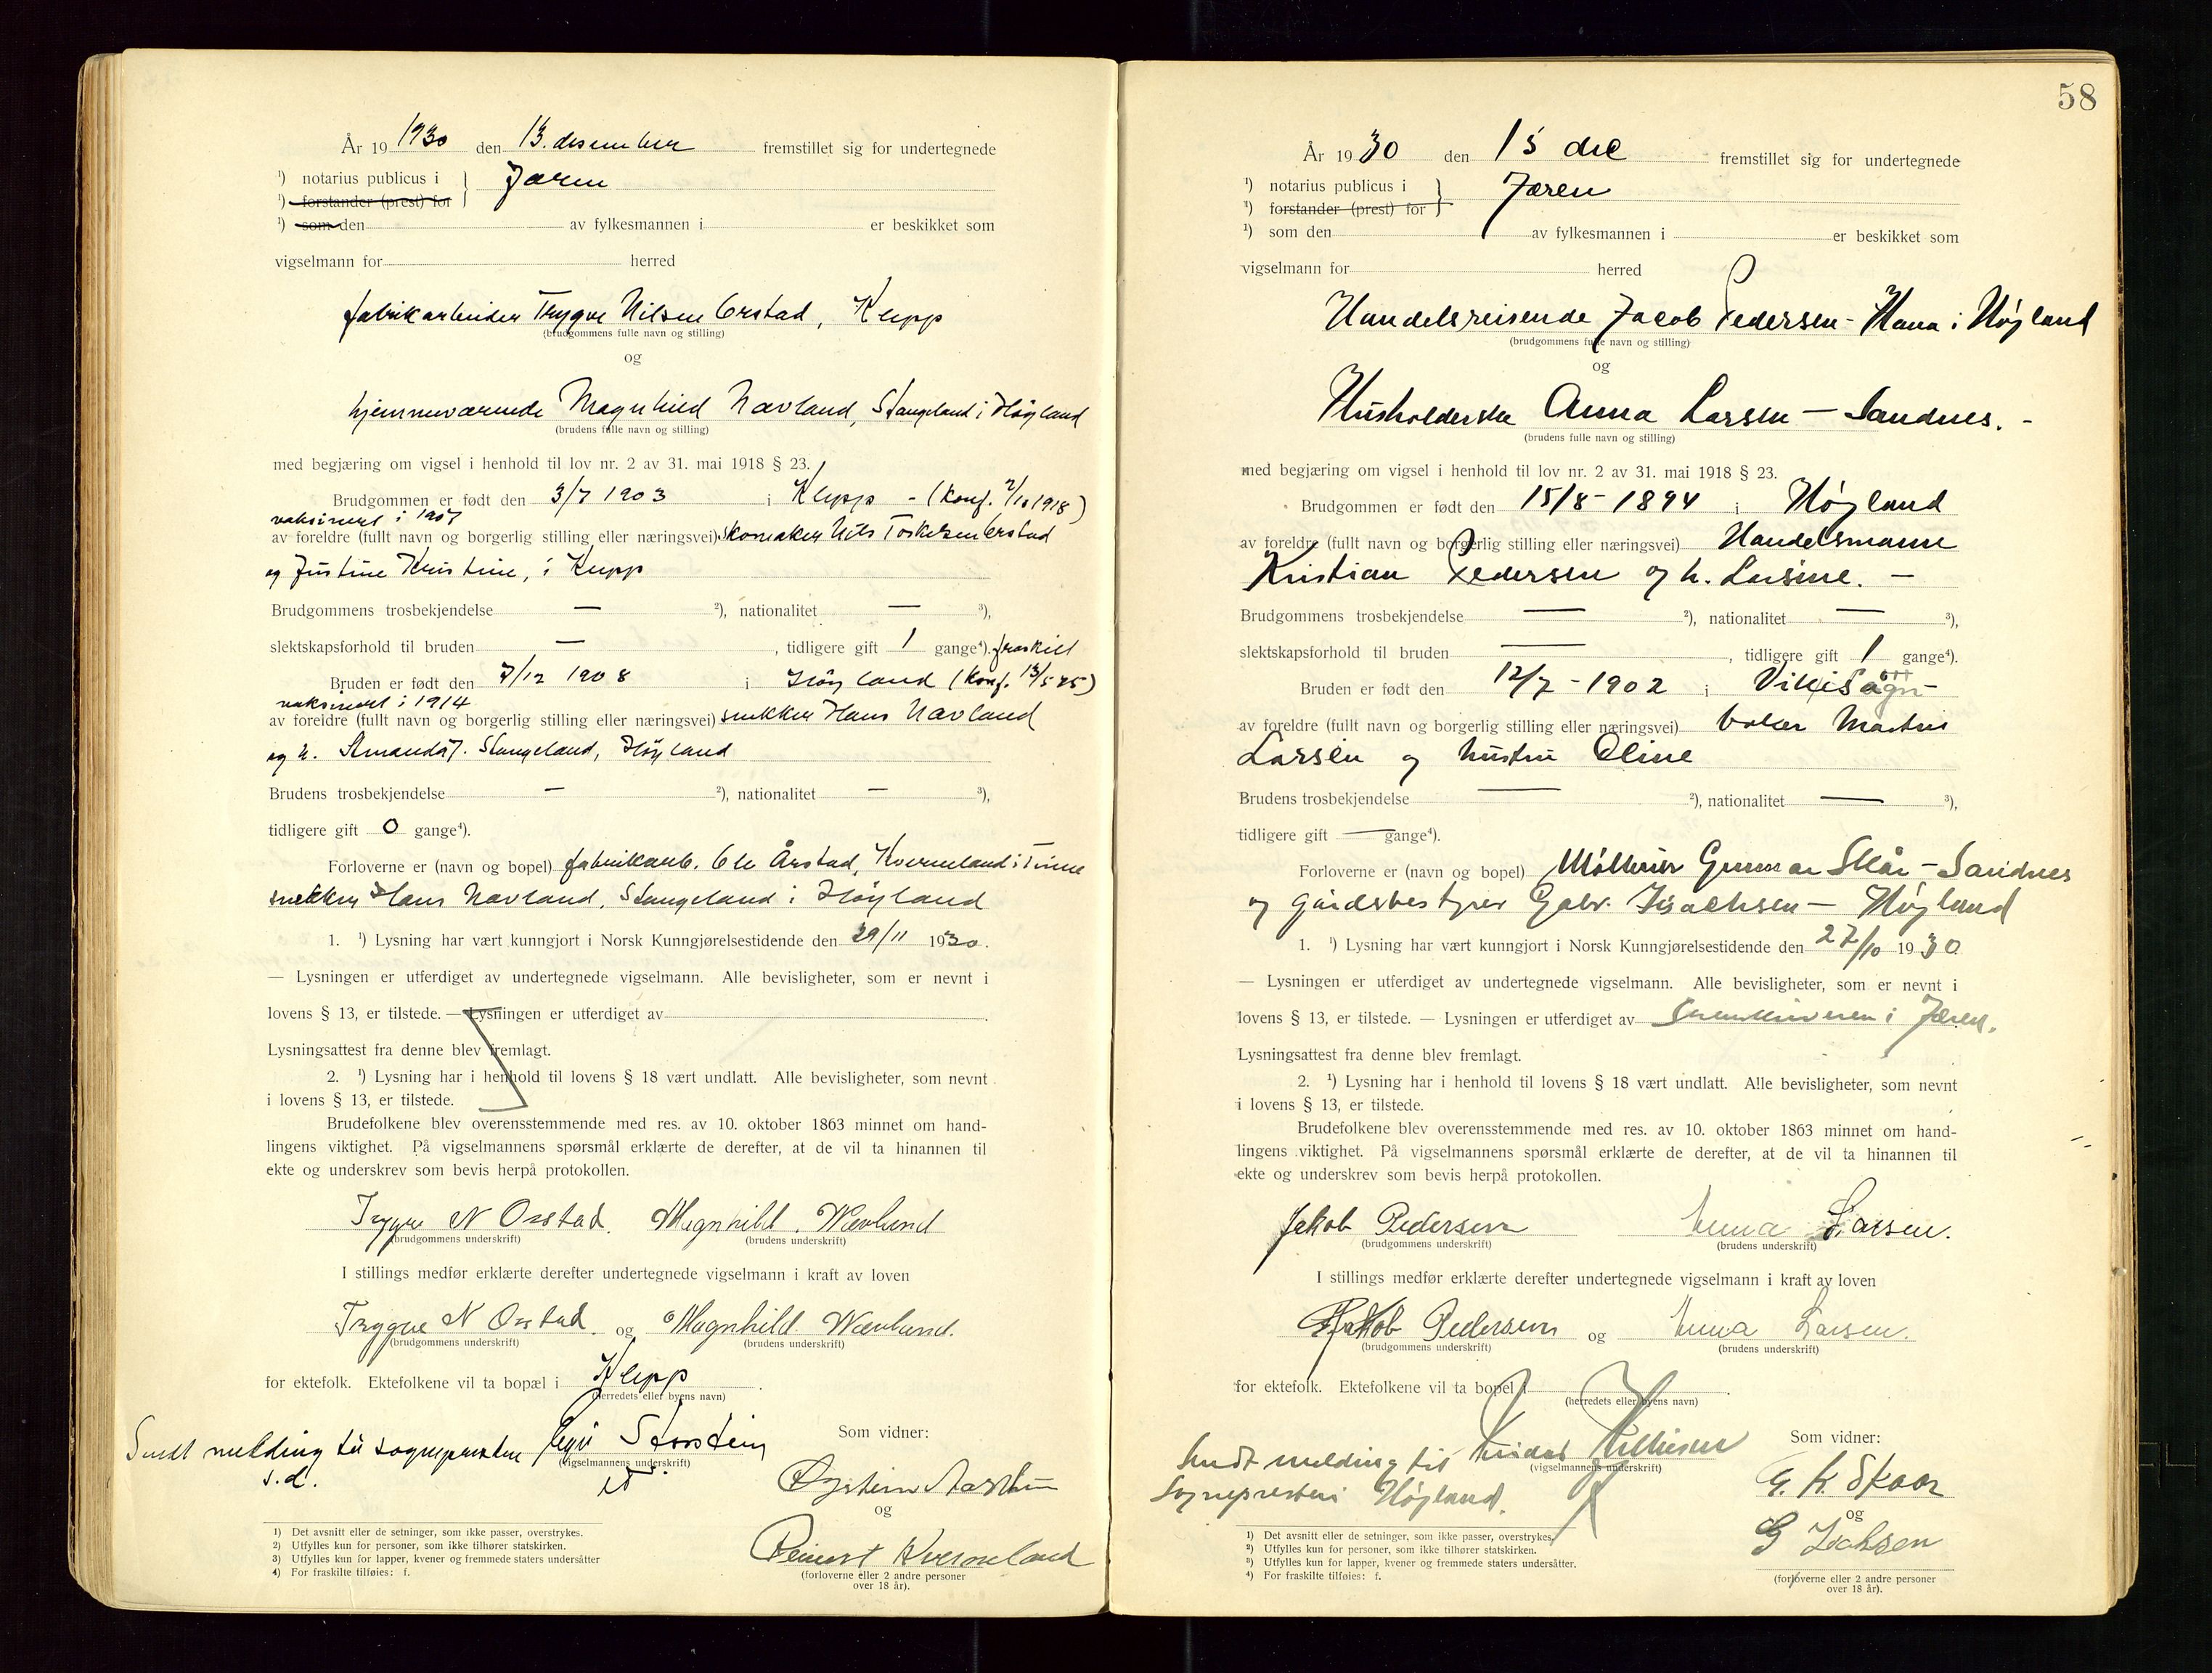 År 19 1930 den 13. desember fremstillet sig for undertegnede
¹) notarius publicus i } Jæren
¹) forstander (prest) for
¹) som den av fylkesmannen i er beskikket som
vigselmann for herred
fabrikarbeider Trygve Nilsen Orstad, Klepp
(brudgommens fulle navn og stilling)
og
hjemmeværende Magnhild Nævland, Stangeland i Høyland
(brudens fulle navn og stilling)
med begjæring om vigsel i henhold til lov nr. 2 av 31. mai 1918 § 23.
Brudgommen er født den 3/7 1903 i Klepp - (konf. 2/10 1918)
vaksinert i 1907
av foreldre (fullt navn og borgerlig stilling eller næringsvei) skomaker Nils Torkelsen Orstad
og Justine Kristine, i Klepp
Brudgommens trosbekjendelse — ²), nationalitet — ³),
slektskapsforhold til bruden — , tidligere gift 1 gange⁴). fraskilt
Bruden er født den 7/12 1908 i Høyland (konf. 13/5 25)
vaksinert i 1914
av foreldre (fullt navn og borgerlig stilling eller næringsvei) snekker Hans Nævland
og h. Amanda J. Stangeland, Høyland
Brudens trosbekjendelse — ²), nationalitet — ³),
tidligere gift 0 gange⁴).
Forloverne er (navn og bopel) fabrikarb. Ole Årstad, Kverneland i Time
snekker Hans Nævland, Stangeland i Høyland
1. ¹) Lysning har vært kunngjort i Norsk Kunngjørelsestidende den 29/11 1930.
— Lysningen er utferdiget av undertegnede vigselmann. Alle bevisligheter, som er nevnt i
lovens § 13, er tilstede. — Lysningen er utferdiget av .
Lysningsattest fra denne blev fremlagt.
2. ¹) Lysning har i henhold til lovens § 18 vært undlatt. Alle bevisligheter, som nevnt
i lovens § 13, er tilstede.
Brudefolkene blev overensstemmende med res. av 10. oktober 1863 minnet om hand-
lingens viktighet. På vigselmannens spørsmål erklærte de derefter, at de vil ta hinannen til
ekte og underskrev som bevis herpå protokollen.
Trygve N Orstad. Magnhild Nævland
(brudgommens underskrift) (brudens underskrift)
I stillings medfør erklærte derefter undertegnede vigselmann i kraft av loven
Trygve N Orstad. og Magnhild Nævland.
(brudgommens underskrift) (brudens underskrift)
for ektefolk. Ektefolkene vil ta bopæl i Klepp .
(herredets eller byens navn)
Sendt melding til sognepresten Storstein
s.d.
(vigselmannens underskrift)
Som vidner:
Øystein
og
Reinert Kverneland
(forloverne eller 2 andre personer
over 18 år).
1) Det avsnitt eller de setninger, som ikke passer, overstrykes.
2) Utfylles kun for personer, som ikke tilhører statskirken.
3) Utfylles kun for lapper, kvener og fremmede staters undersåtter
4) For fraskilte tilføies: f.
58
År 1930 den 15 des fremstillet sig for undertegnede
¹) notarius publicus i } Jæren
¹) forstander (prest) for
¹) som den av fylkesmannen i er beskikket som
vigselmann for herred
Handelsreisende Jacob Pedersen - Hana i Høyland
(brudgommens fulle navn og stilling)
og
Husholderske Anna Larsen — Sandnes. -
(brudens fulle navn og stilling)
med begjæring om vigsel i henhold til lov nr. 2 av 31. mai 1918 § 23.
Brudgommen er født den 15/8 - 1894 i Høyland
av foreldre (fullt navn og borgerlig stilling eller næringsvei) Handelsmann
Kristian Pedersen og h. Lusine. —
Brudgommens trosbekjendelse — ²), nationalitet — ³),
slektskapsforhold til bruden — , tidligere gift 1 gange⁴).
Bruden er født den 12/7 - 1902 i
av foreldre (fullt navn og borgerlig stilling eller næringsvei) Martin
Larsen og hustru Oline
Brudens trosbekjendelse — ²), nationalitet — ³),
tidligere gift — gange⁴).
Forloverne er (navn og bopel) Gunnar Skår — Sandnes
og gårdsbestyrer Gabr. Isachsen — Høyland
1. ¹) Lysning har vært kunngjort i Norsk Kunngjørelsestidende den 27/10 1930.
— Lysningen er utferdiget av undertegnede vigselmann. Alle bevisligheter, som er nevnt i
lovens § 13, er tilstede. — Lysningen er utferdiget av Sorenskriveren i Jæren.
Lysningsattest fra denne blev fremlagt.
2. ¹) Lysning har i henhold til lovens § 18 vært undlatt. Alle bevisligheter, som nevnt
i lovens § 13, er tilstede.
Brudefolkene blev overensstemmende med res. av 10. oktober 1863 minnet om hand-
lingens viktighet. På vigselmannens spørsmål erklærte de derefter, at de vil ta hinannen til
ekte og underskrev som bevis herpå protokollen.
Jakob Pedersen Anna Larsen.
(brudgommens underskrift) (brudens underskrift)
I stillings medfør erklærte derefter undertegnede vigselmann i kraft av loven
Jakob Pedersen og Anna Larsen.
(brudgommens underskrift) (brudens underskrift)
for ektefolk. Ektefolkene vil ta bopel i .
(herredets eller byens navn)
Sendt melding til
Sognepresten i Høyland.
(vigselmannens underskrift)
Som vidner:
G. K. Skaar
og
G Isaksen
(forloverne eller 2 andre personer
over 18 år).
1) Det avsnitt eller de setninger, som ikke passer, overstrykes.
2) Utfylles kun for personer, som ikke tilhører statskirken.
3) Utfylles kun for lapper, kvener og fremmede staters undersåtter.
4) For fraskilte tilføies: f.